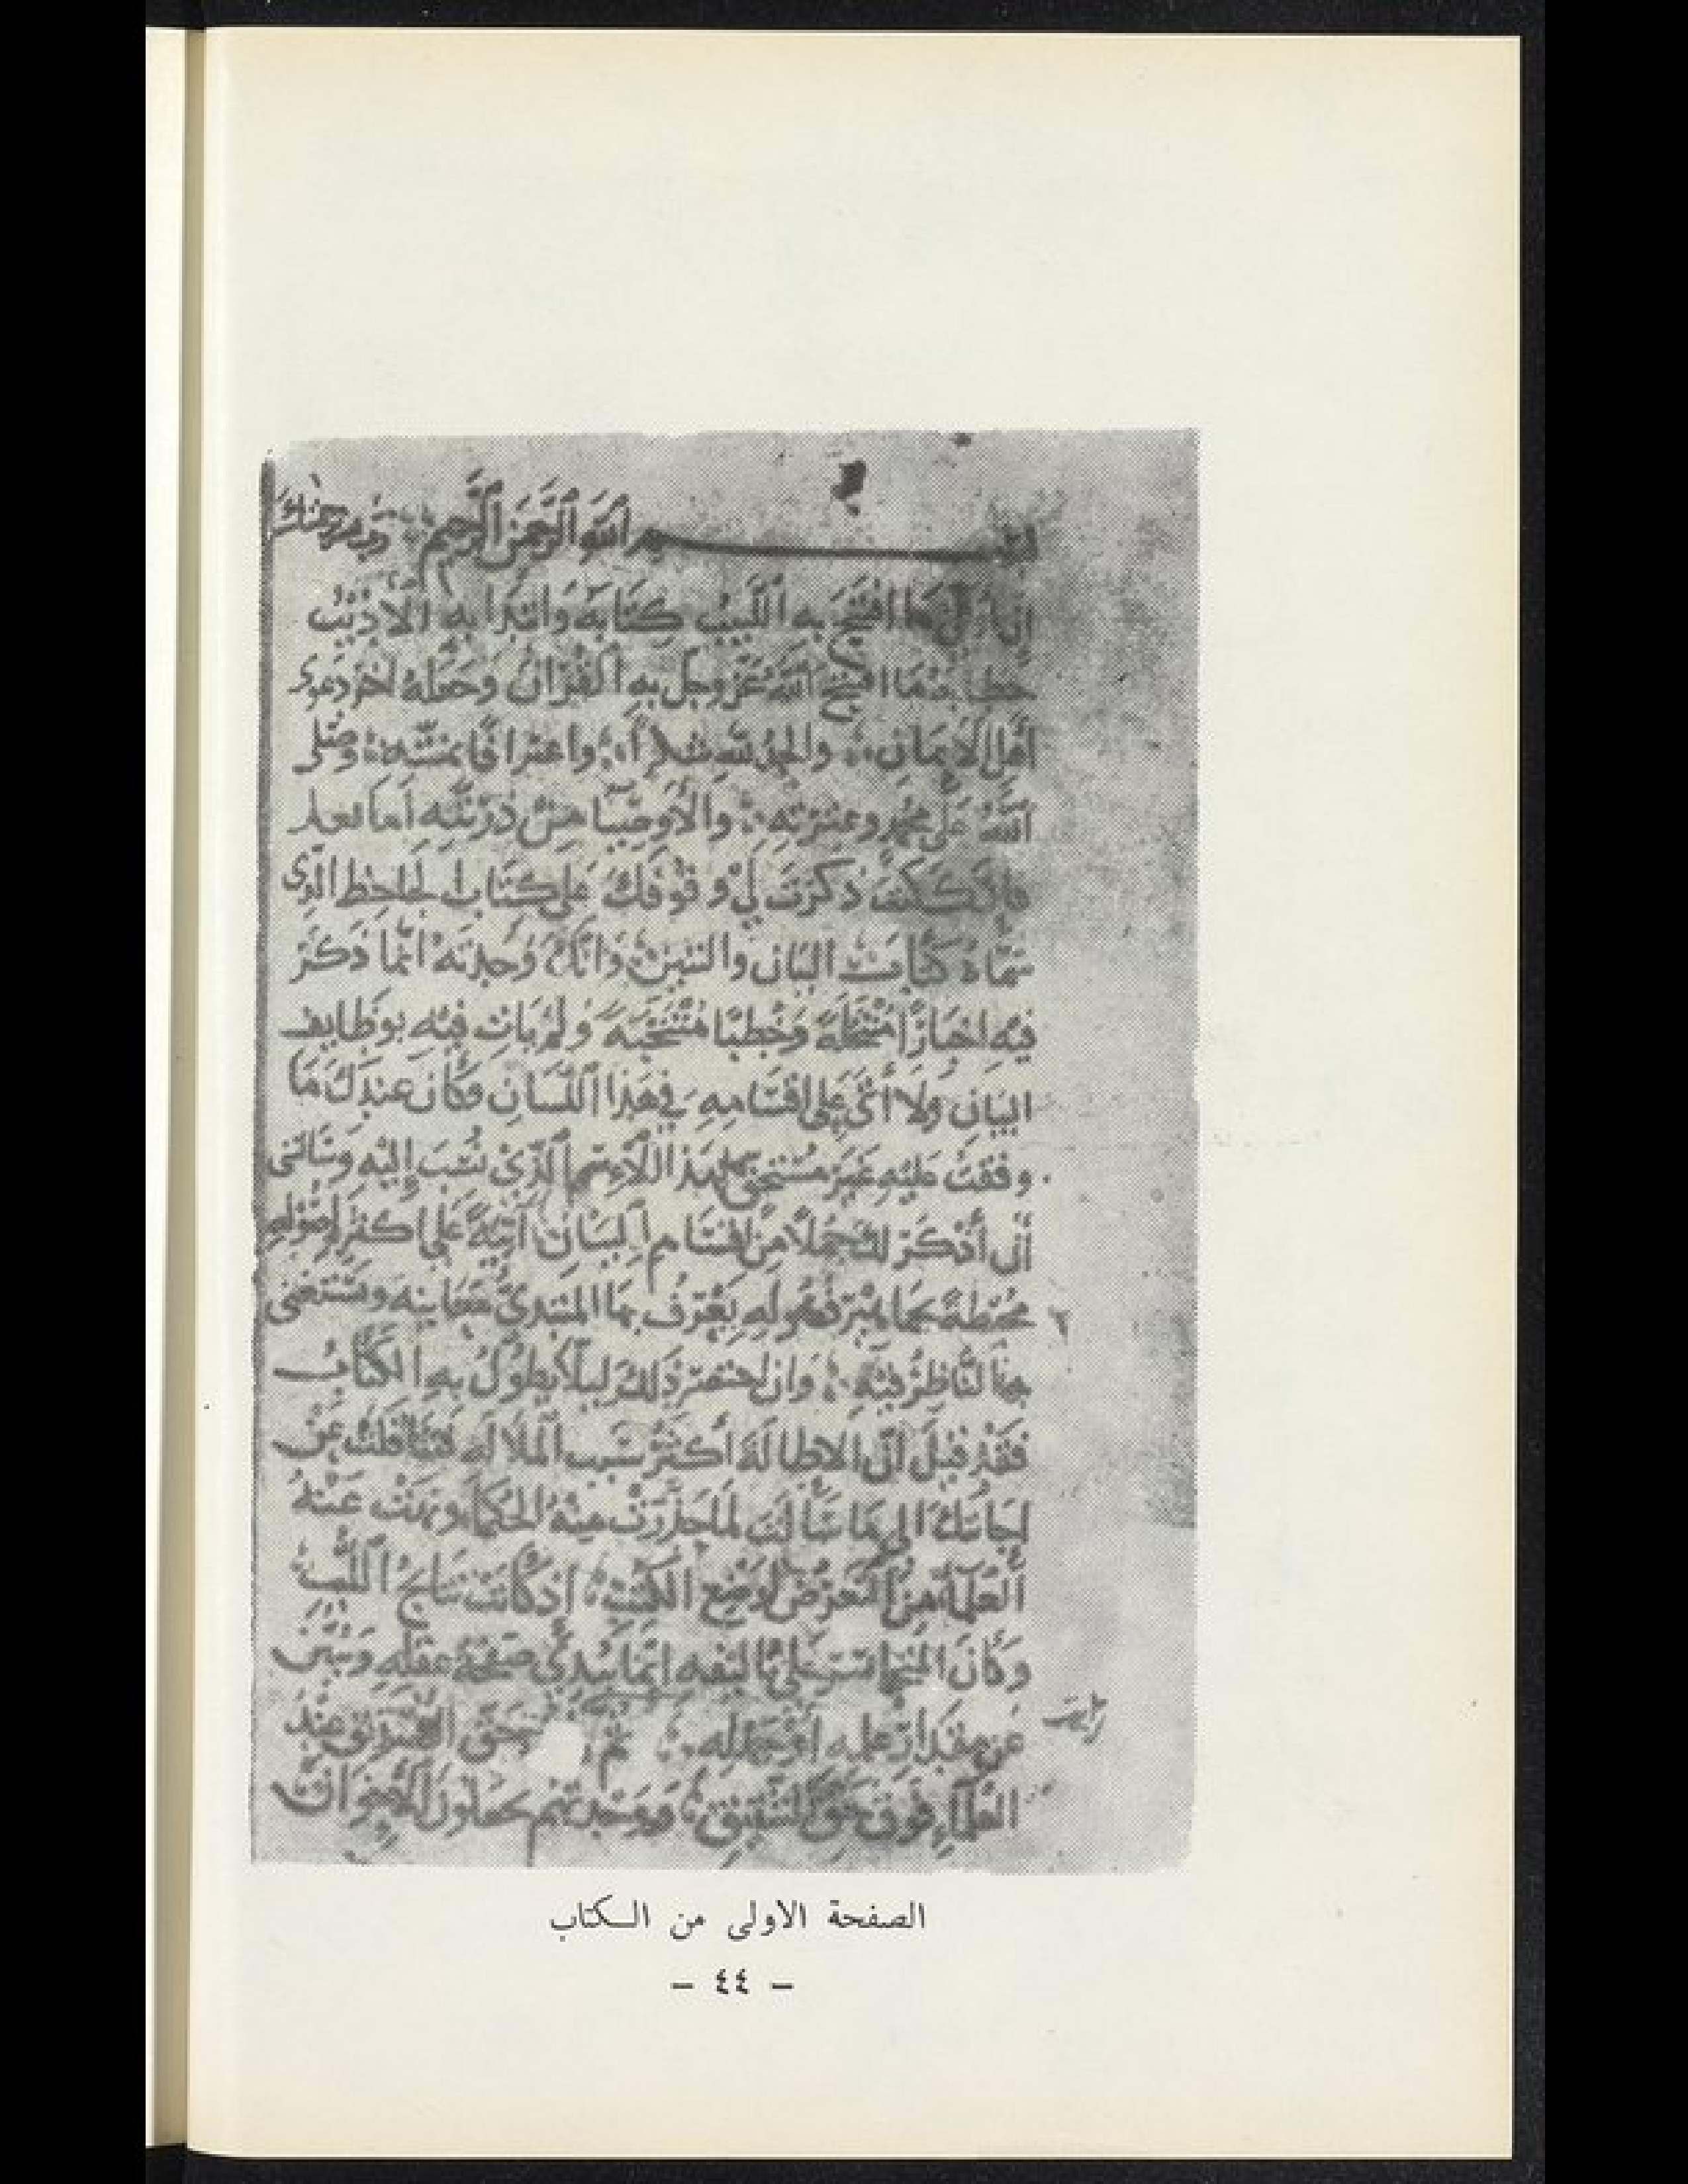 بسم الله الرحمن الرحيم رب
ان اول ما افتتح به اللبيب كتابه وابتدا به الاديب
خطابه ما افتتح الله عز وجل به القران وجعله اخر دعوى
أهل الايمان والحمد لله شكرا واعترافا بمنته وصلى
الله على محمد وعترته والأوصيا من ذريته اما بعد
فانك كنت ذكرت لي وقوفك على كتاب الجاحظ الذى
سماه كتاب البيان والتبين وانك وجدته انما ذكر
فيه اخبارا منتحلة وخطبا منتخبة ولم يات فيه بوظايف
البيان ولا أتى على اقسامه في هذا اللسان وكان عندك ما
وقفت عليه غير مستحق لهذا الاسم الذي نسب إليه وسالتنى
أن أذكر لك جملا من اقسام البيان آتية على اكثر اصوله
محيطة بجماهير فصوله يعرف بها المبتدئ معانيه ويستغنى
بها الناظر فيه وان اختصر ذلك ليلا يطول به الكتاب
فقد قيل ان الاطالة أكثر سبب الملالة فتثاقلت عن
اجابتك الى ما سالت لما حذرت منه الحكما ونهت عنه
العلما من التعرض لوضع الكتب اذ كانت نتايج اللب
وكان المتجاسر على تاليفه انما يبدي صفحة عقله ويبين
عن مقدار علمه او جهله ثم عند
العلماء فوق حق الشقيق ووجدتهم يجعلون الاخوان
الصفحة الاولى من الكتاب
– ٤٤ –